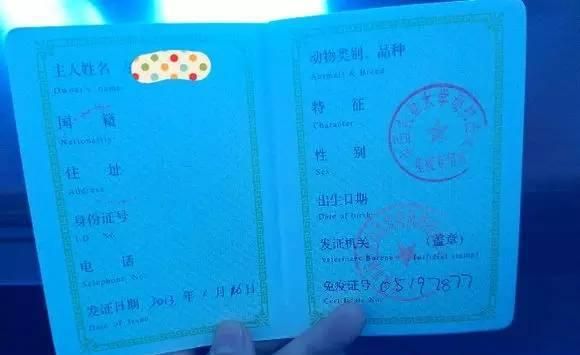 主人姓名
Owner's name
国 籍
Nationality
住 址
Address
身份证号
I.D No.
电 话
Telephone No.
发证日期 2013 年 1 月 16日
Date of Issue
动物类别、品种
Animals & Breed
特 征
Character
性 别
Sex
出生日期
Date of birth
发证机关 (盖章)
Veterinary Bureau (official stamp)
免疫证号 05197877
Certificate No.